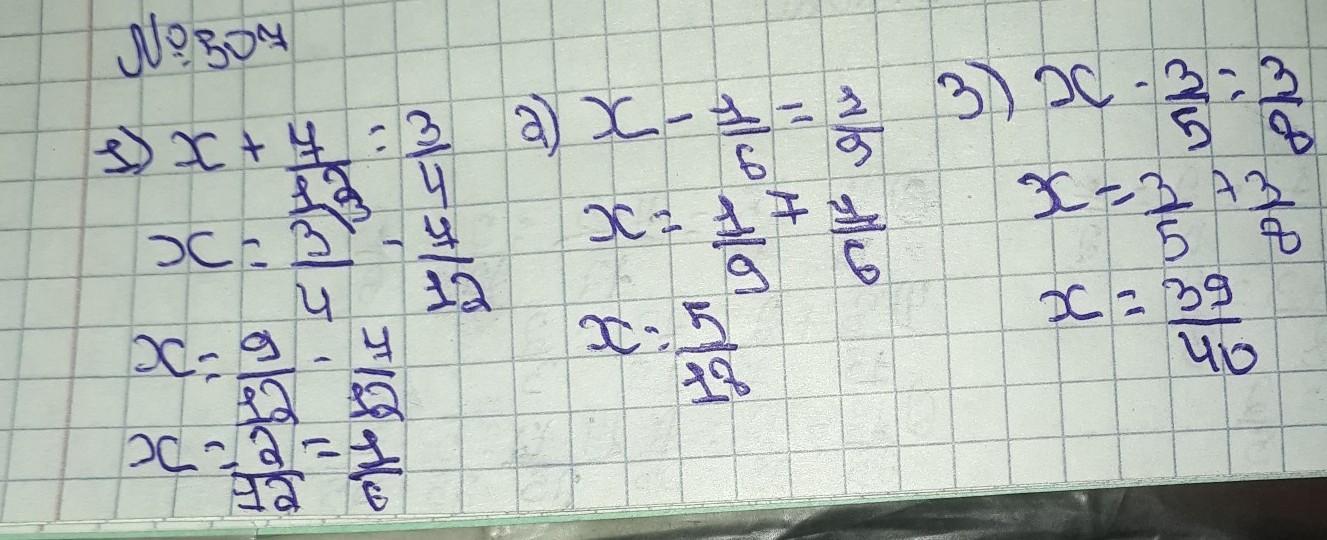 № 307
1) x + 7/12 = 3/4
x = 3/4 - 7/12
x = 9/12 - 7/12
x = 2/12 = 1/6
2) x - 1/6 = 1/9
x = 1/9 + 1/6
x = 5/18
3) x - 3/5 = 3/8
x = 3/5 + 3/8
x = 39/40